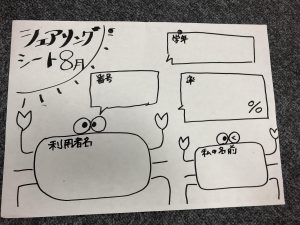 シェアリング
シート8月
学年
番号
率
%
利用者名
私の名前